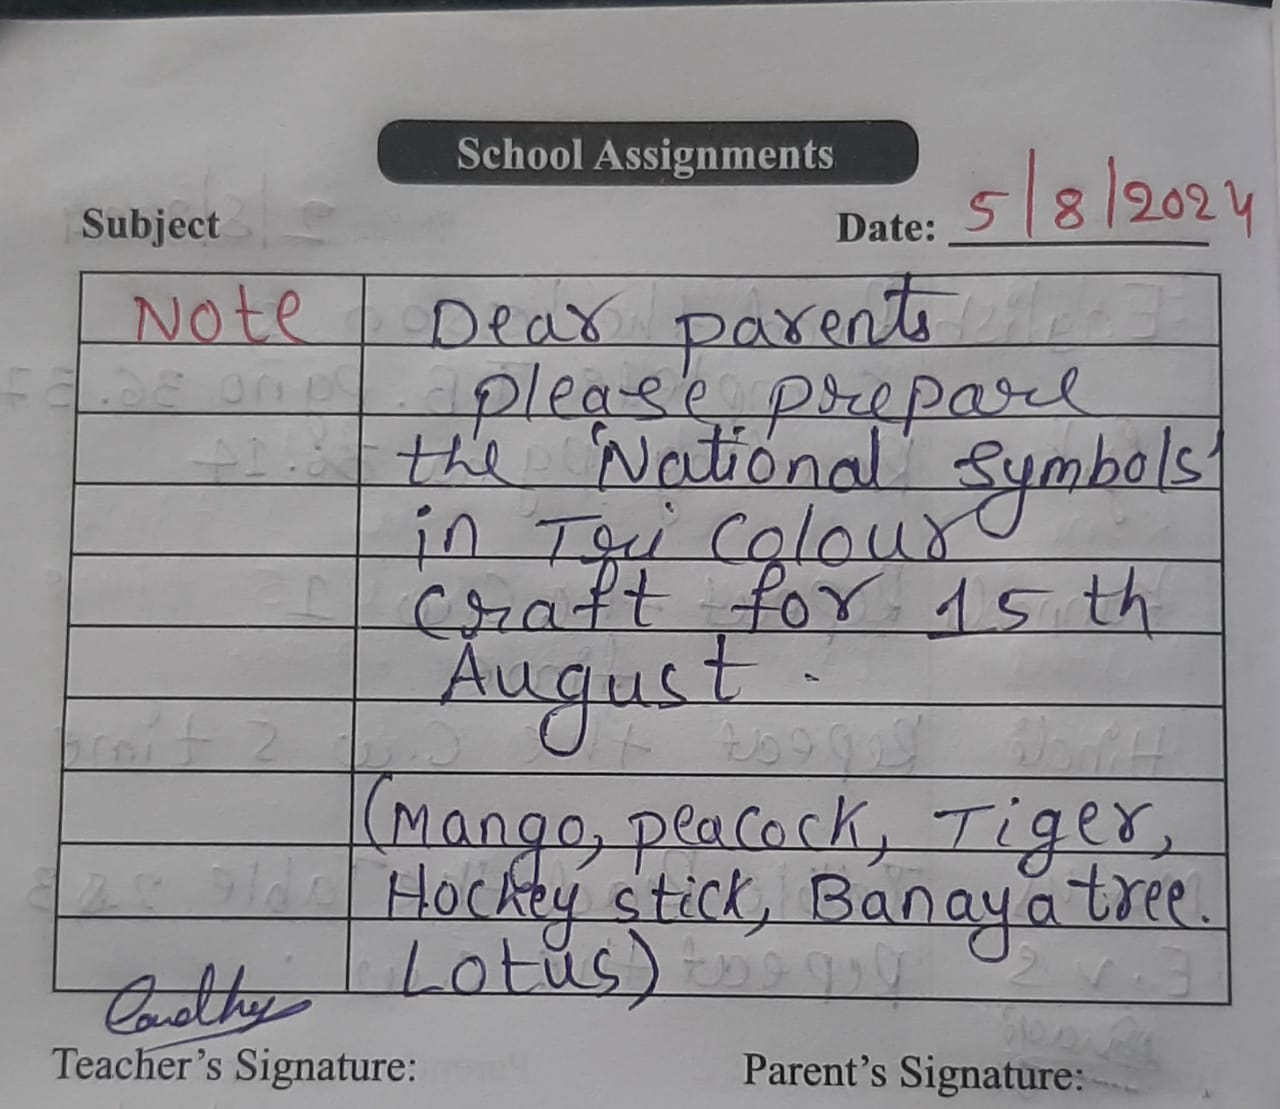 School Assignments
Subject
Date: 5/8/2024
Note Dear parents
please prepare
the 'National Symbols'
in Tri colour
craft for 15th
August.
(Mango, peacock, Tiger,
Hockey stick, Banaya tree.
Lotus)
Teacher's Signature:
Parent's Signature: